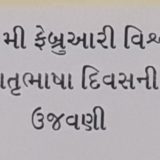 મી ફેબ્રુઆરી વિશ્વ
માતૃભાષા દિવસની
ઉજવણી